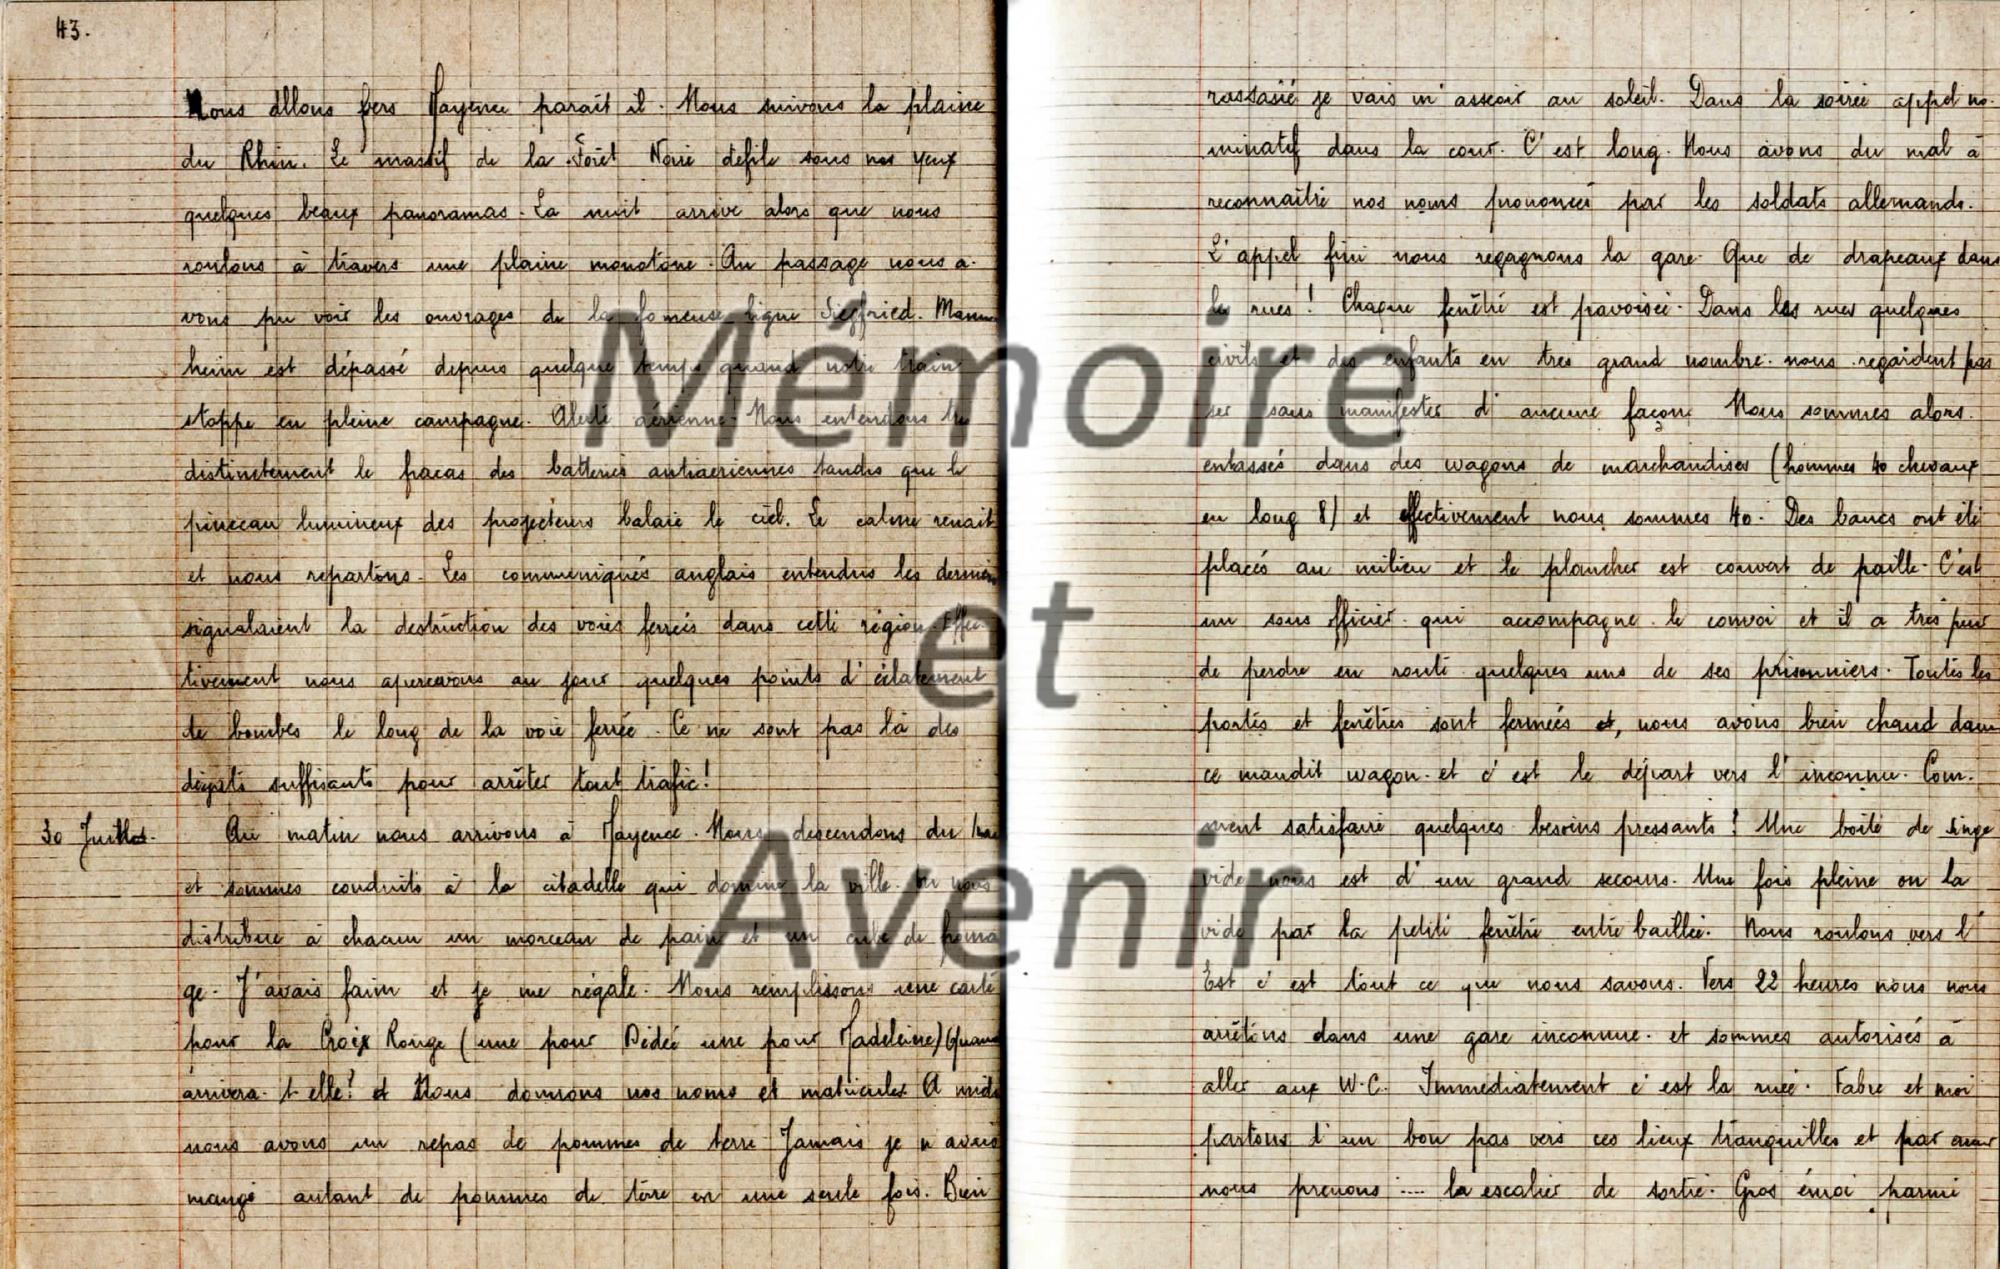 43.
Nous allons vers Mayence parait il. Nous suivons la plaine
du Rhin. Le massif de la Forêt Noire défile sous nos yeux
quelques beaux panoramas. La nuit arrive alors que nous
roulons à travers une plaine monotone. Au passage nous a-
vons pu voir les ouvrages de la fameuse ligne Siegfried. Mann
heim est dépassé depuis quelque temps quand notre train
stoppe en pleine campagne. Alerte aérienne. Nous entendons très
distinctement le fracas des batteries antiaeriennes tandis que le
pinceau lumineux des projecteurs balaie le ciel. Le calme renait
et nous repartons. Les communiqués anglais entendus les derniers
signalaient la destruction des voies ferrées dans cette région. Effec-
tivement nous apercevons au jour quelques points d'éclatement
de bombes le long de la voie ferrée. Ce ne sont pas là des
dégats suffisants pour arrêter tout trafic!
30 Juillet. Au matin nous arrivons à Mayence. Nous descendons du
et sommes conduits à la citadelle qui domine la ville. On nous
distribue à chacun un morceau de pain et un cube de froma
ge. J'avais faim et je me régale. Nous remplissons une carte
pour la Croix Rouge (une pour Dédée une pour Madeleine) Quand
arrivera-t-elle? et Nous donnons nos noms et matricules. A midi
nous avons un repas de pommes de terre. Jamais je n'avais
mangé autant de pommes de terre en une seule fois. Bien
rassasié je vais m'asseoir au soleil. Dans la soirée appel no-
minatif dans la cour. C'est long. Nous avons du mal à
reconnaître nos noms prononcés par les soldats allemands.
L'appel fini nous regagnons la gare. Que de drapeaux dans
les rues! Chaque fenêtre est pavoisée. Dans les rues quelques
civils et des enfants en tres grand nombre nous regardent pas
ser sans manifester d'aucune façon. Nous sommes alors.
entassés dans des wagons de marchandises (hommes 40 chevaux
en long 8) et effectivement nous sommes 40. Des bancs ont été
placés au milieu et le plancher est couvert de paille. C'est
un sous officier qui accompagne le convoi et il a très peur
de perdre en route quelques uns de ses prisonniers. Toutes les
portes et fenêtres sont fermées et, nous avons bien chaud dans
ce maudit wagon. et c'est le départ vers l'inconnu. Com-
ment satisfaire quelques besoins pressants? Une boite de singe
vide nous est d'un grand secours. Une fois pleine on la
vide par la petite fenêtre entre baillée. Nous roulons vers l'
Est c'est tout ce que nous savons. Vers 22 heures nous nous
arrêtons dans une gare inconnue. et sommes autorisés à
aller aux W.C. Immediatement c'est la ruée. Fabre et moi
partons d'un bon pas vers ces lieux tranquilles et par
nous prenons .... la escalier de sortie. Gros émoi parmi
Mémoire
et
Avenir